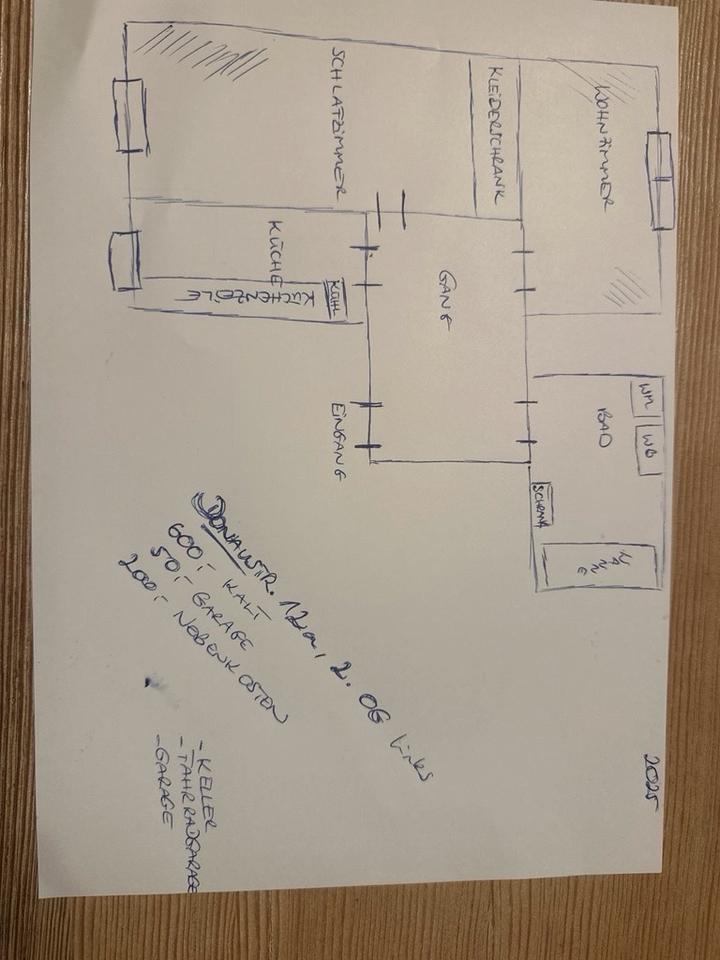 WOHNZIMMER
KLEIDERSCHRANK
SCHLAFZIMMER
GANG
KÜCHE
KÜHL
KÜCHENZEILE
EINGANG
WM
WB
BAD
SCHRANK
WANNE
2025
DONAUSTR. 12a, 2. OG links
600,- KALT
50,- GARAGE
200,- NEBENKOSTEN
- KELLER
- FAHRRADGARAGE
- GARAGE